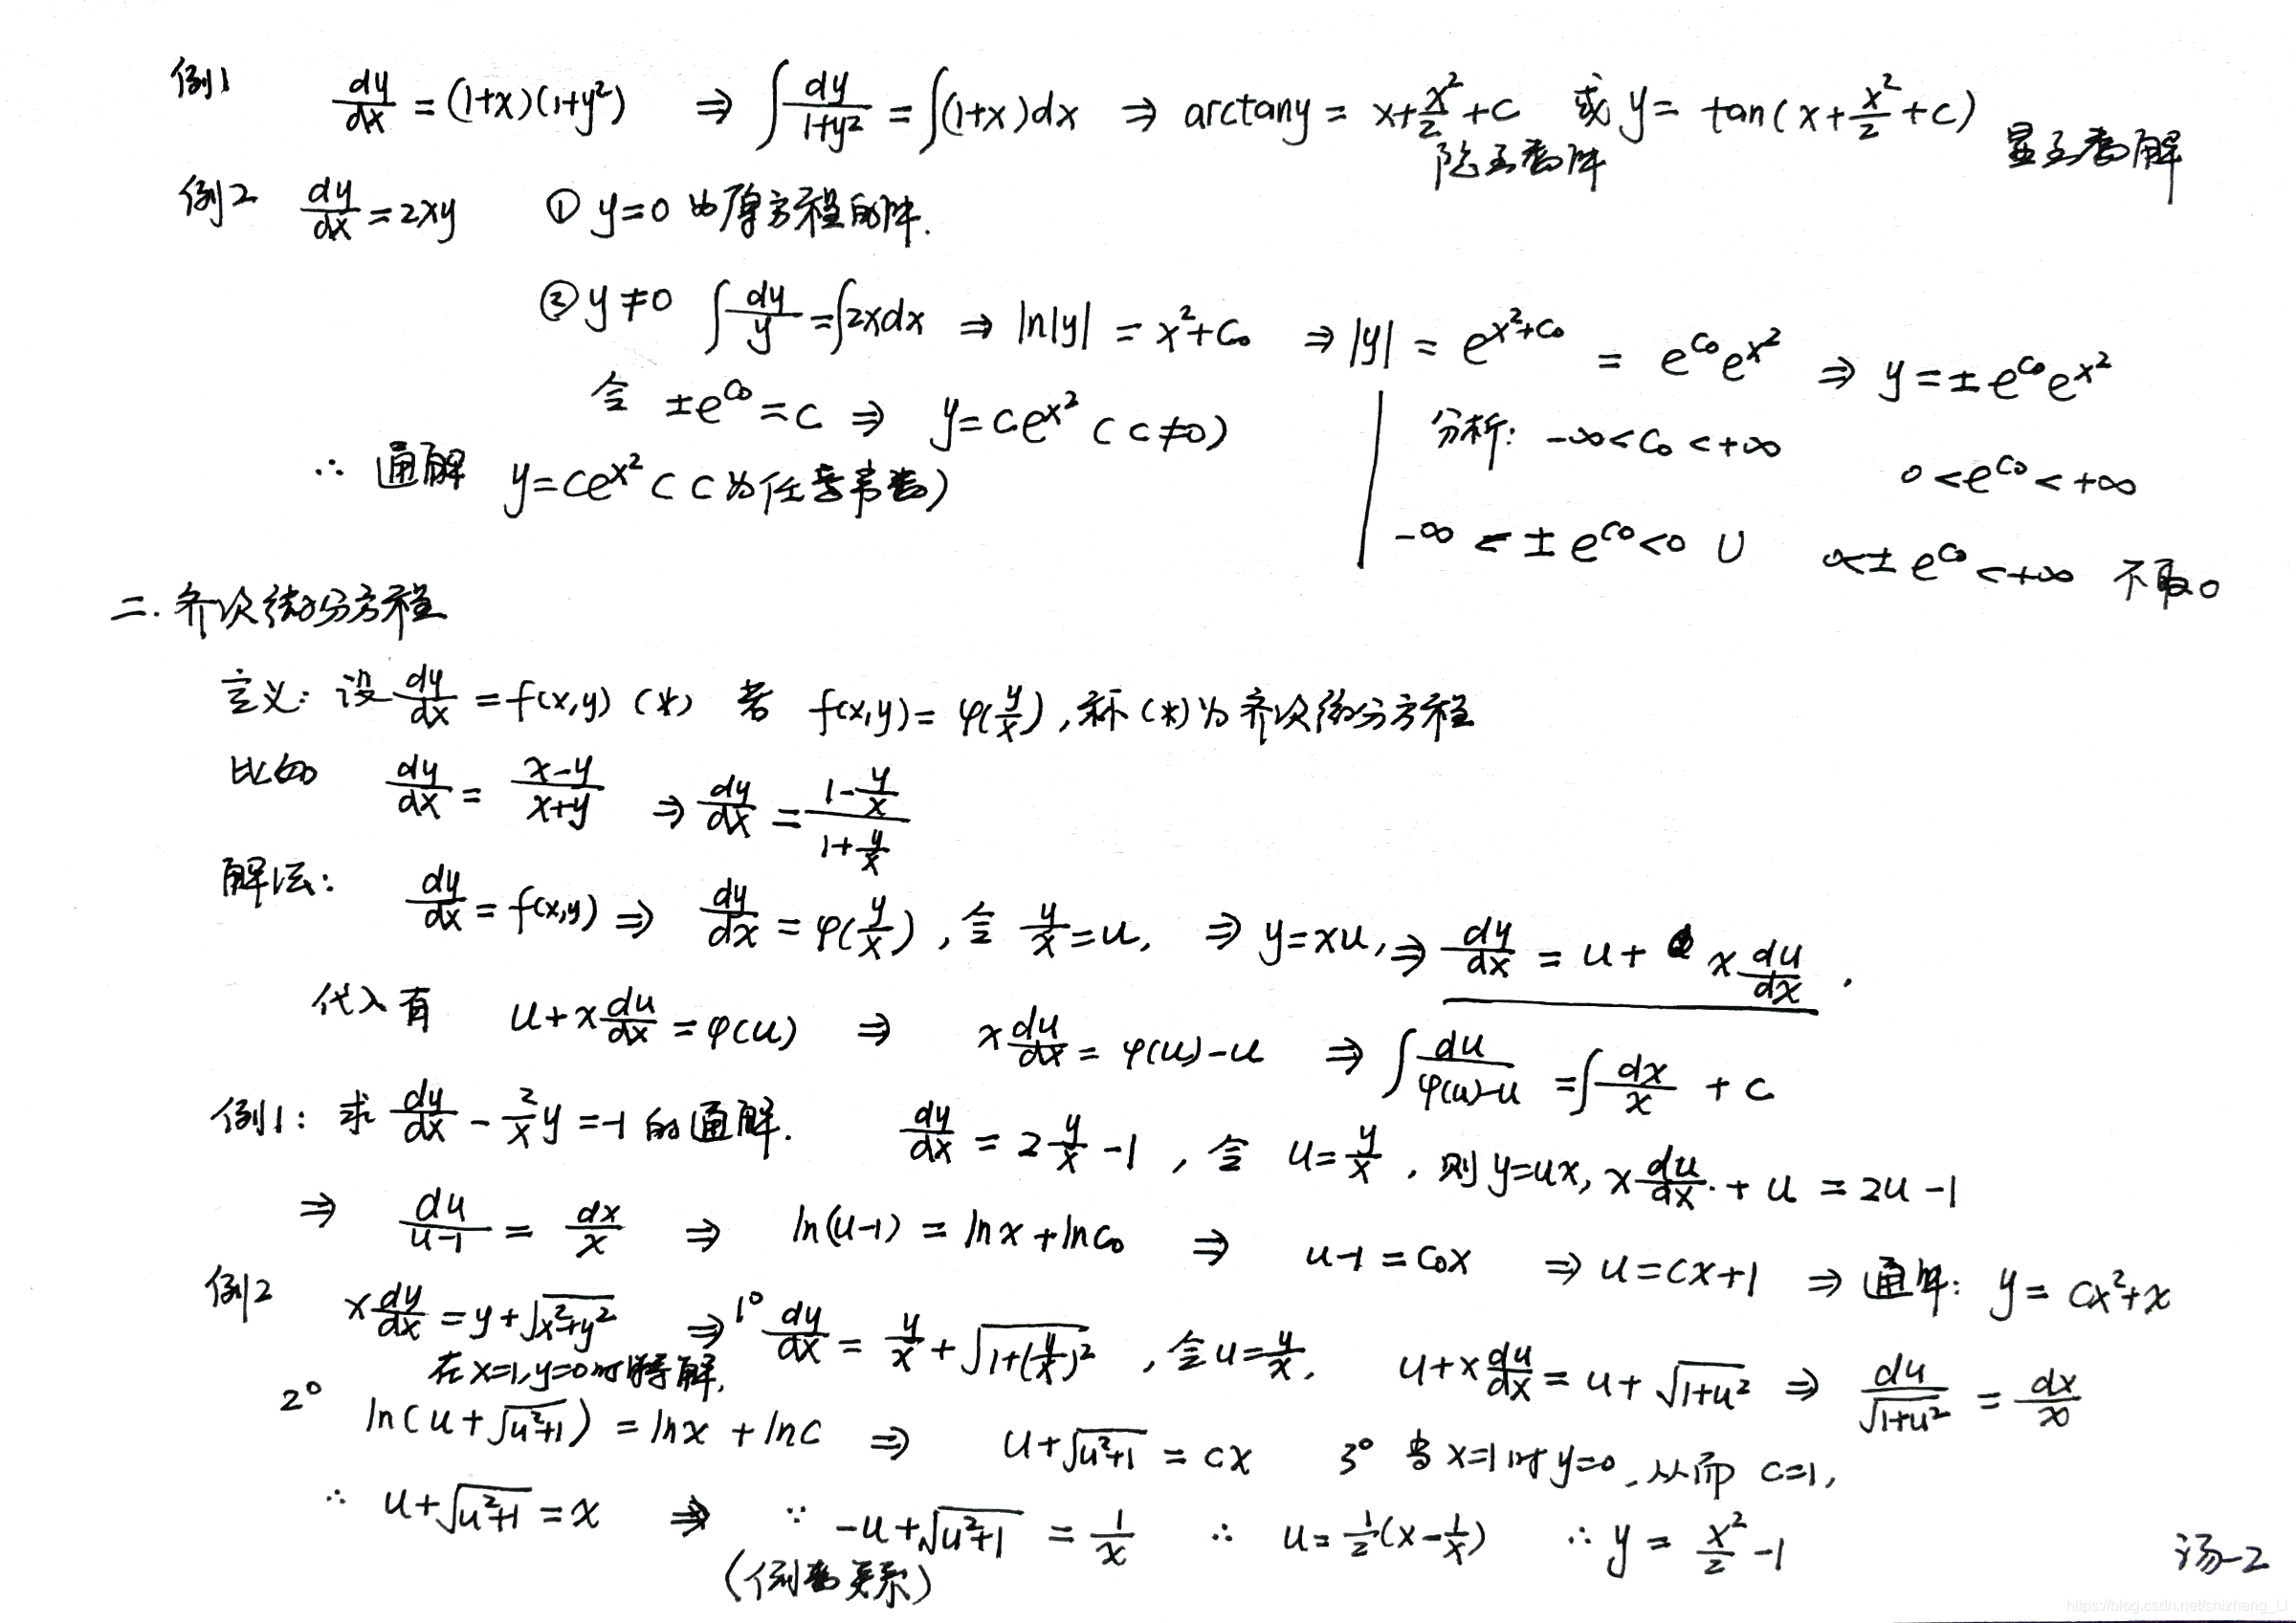 例1 dy/dx = (1+x)(1+y²) ⇒ ∫dy/(1+y²) = ∫(1+x)dx ⇒ arctany = x+x²/2+C 或 y = tan(x+x²/2+C)
隐函数解 显函数解
例2 dy/dx = 2xy ① y=0 为原方程的解.
② y≠0 ∫dy/y = ∫2xdx ⇒ ln|y| = x²+C₀ ⇒ |y| = e^(x²+C₀) = e^(C₀)e^(x²) ⇒ y = ±e^(C₀)e^(x²)
令 ±e^(C₀) = C ⇒ y = Ce^(x²) (C≠0)
分析: -∞<C₀<+∞ 0<e^(C₀)<+∞
∴ 通解 y = Ce^(x²) (C为任意常数)
-∞ < ±e^(C₀) < 0 ∪ 0<±e^(C₀)<+∞ 不取0
二. 齐次微分方程
定义: 设 dy/dx = f(x,y) (*) 若 f(x,y) = φ(y/x), 称(*)为齐次微分方程
比如 dy/dx = (x-y)/(x+y) ⇒ dy/dx = (1-y/x)/(1+y/x)
解法: dy/dx = f(x,y) ⇒ dy/dx = φ(y/x), 令 y/x = u, ⇒ y=xu, ⇒ dy/dx = u + x du/dx.
代入有 u+x du/dx = φ(u) ⇒ x du/dx = φ(u)-u ⇒ ∫du/(φ(u)-u) = ∫dx/x + C
例1: 求 dy/dx - (2/x)y = -1 的通解. dy/dx = 2 y/x - 1, 令 u = y/x, 则 y=ux, x du/dx + u = 2u-1
⇒ du/(u-1) = dx/x ⇒ ln(u-1) = lnx + lnC₀ ⇒ u-1 = C₀x ⇒ u = Cx+1 ⇒ 通解: y = Cx²+x
例2 x dy/dx = y+√(x²+y²) ⇒ 1° dy/dx = y/x + √(1+(y/x)²), 令 u = y/x, u+x du/dx = u+√(1+u²) ⇒ du/√(1+u²) = dx/x
在x=1,y=0时特解.
2° ln(u+√(u²+1)) = lnx + lnC ⇒ u+√(u²+1) = Cx 3° 当x=1时y=0, 从而 C=1,
∴ u+√(u²+1) = x ⇒ ∵ -u+√(u²+1) = 1/x ∴ u = 1/2(x-1/x) ∴ y = x²/2 - 1
(倒数关系)
汤-2
https://blog.csdn.net/shizheng_Li